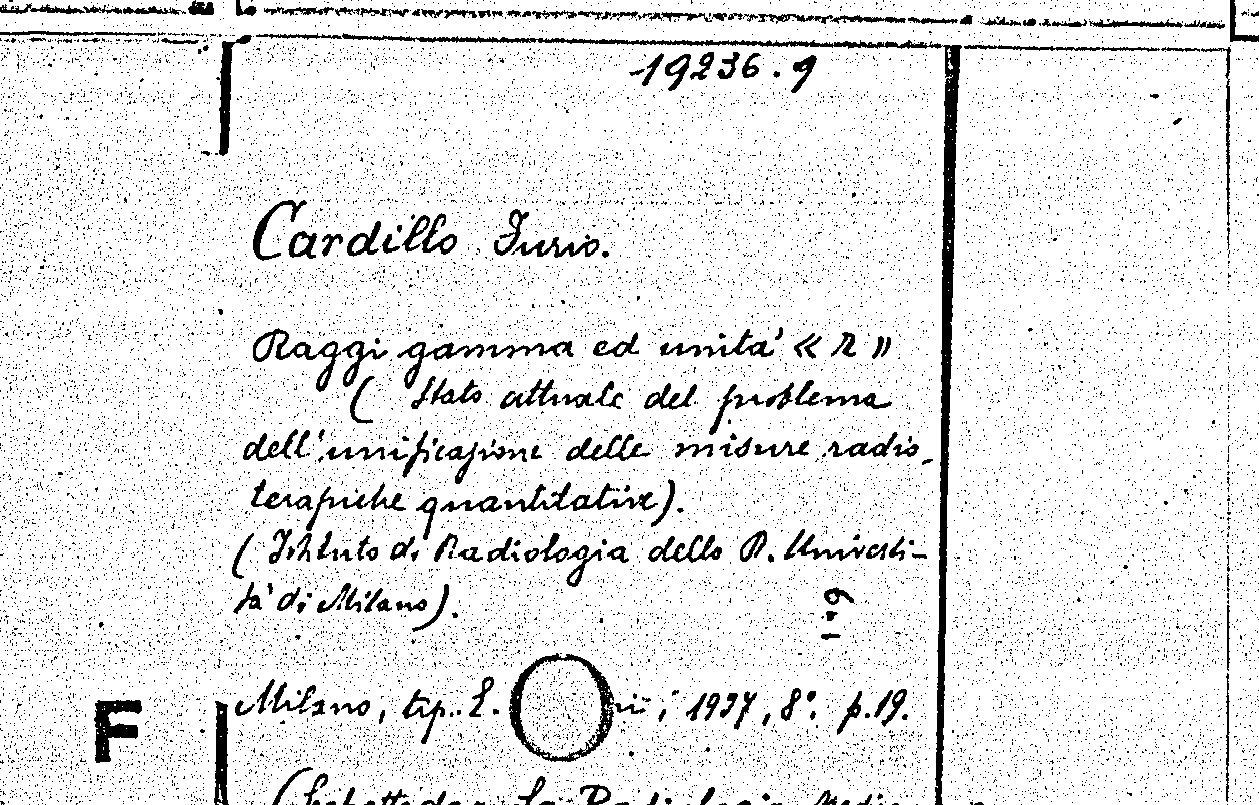 19236.9
Cardillo Furio.
Raggi gamma ed unita' « R »
( Stato attuale del problema
dell'unificazione delle misure radio-
terapiche quantitative).
( Istituto di Radiologia della R. Universi-
ta' di Milano).
Milano, tip. 1937, 8° p.19.
F
La Radiologia